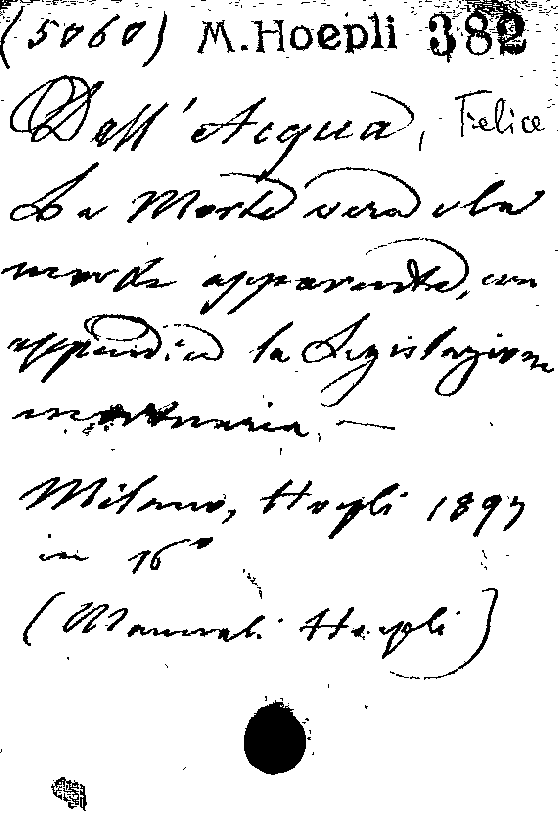 (5060) M. Hoepli 382
Dall'Acqua, Felice
La Morte vera e la
morte apparente, con
appendice la Legislazione
mortuaria. —
Milano, Hoepli 1897
in 16°
(Manuali Hoepli)